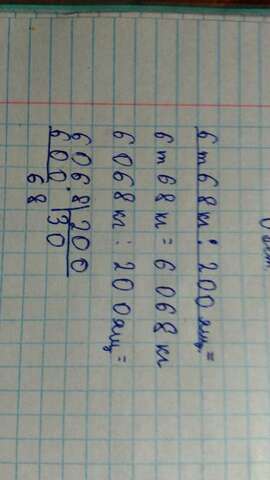 6 т 68 кг : 200 ящ =
6 т 68 кг = 6068 кг
6068 кг : 200 ящ =
6068 | 200
600 30
68